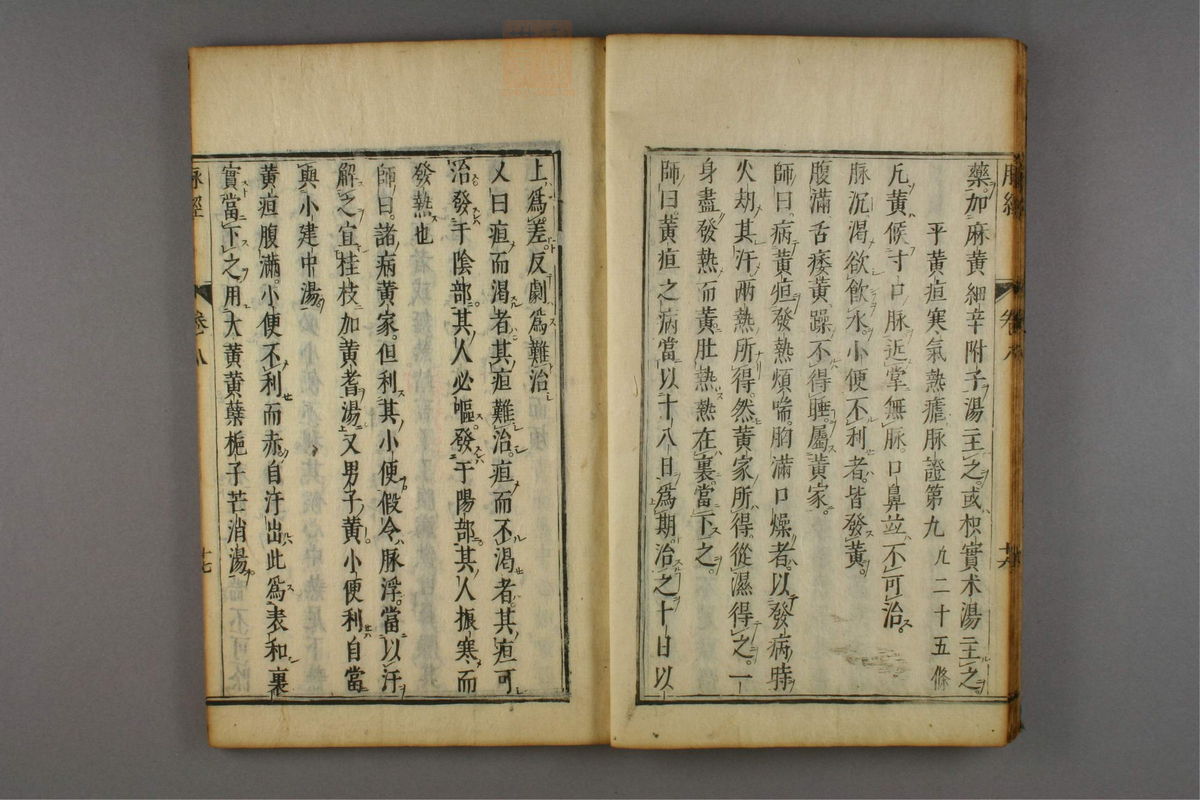 藥加麻黄細辛附子湯主之或枳實术湯主之
平黄疸寒氣熱瘧脉證第九 凡二十五條
凡黄候寸口脉近掌無脉口鼻並不可治
脉沉渴欲飲水小便不利者皆發黄
腹滿舌痿黄躁不得睡屬黄家
師曰病黄疸發熱煩喘胸滿口燥者以發病時
火劫其汗兩熱所得然黄家所得從濕得之一
身盡發熱而黄肚熱熱在裏當下之
師曰黄疸之病當以十八日爲期治之十日以
上爲差反劇爲難治
又曰疸而渴者其疸難治疸而不渴者其疸可
治發于陰部其人必嘔發于陽部其人振寒而
發熱也
師曰諸病黄家但利其小便假令脉浮當以汗
解之宜桂枝加黄耆湯又男子黄小便利自當
與小建中湯
黄疸腹滿小便不利而赤自汗出此爲表和裏
實當下之用大黄黄蘗梔子芒消湯
脉經 卷八 十七